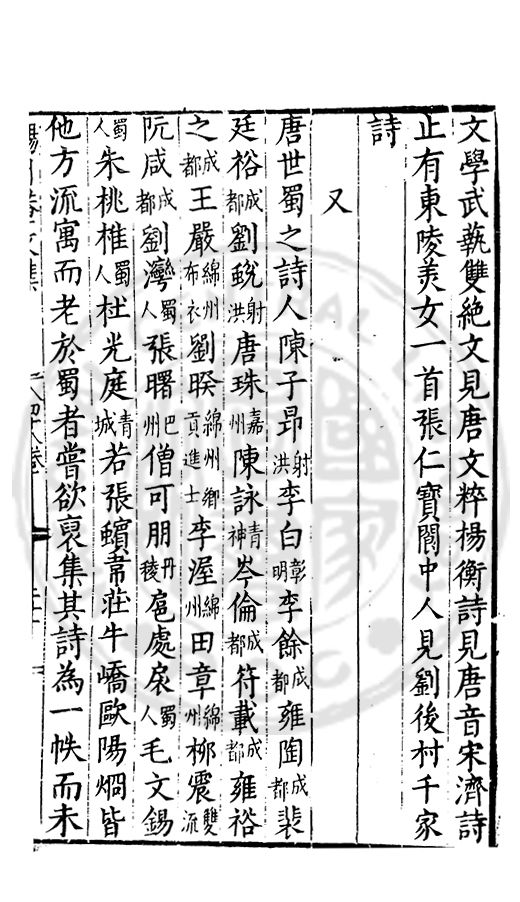 文學武藝雙絶文見唐文粹楊衡詩見唐音宋濟詩
止有東陵美女一首張仁寶閬中人見劉後村千家
詩
又
唐世蜀之詩人陳子昂射洪李白彰明李餘成都雍陶成都裴
廷裕成都劉蛻射洪唐珠嘉州陳詠青神岑倫成都符載成都雍裕
之成都王嚴綿州布衣劉暌綿州鄉貢進士李渥綿州田章綿州柳震雙流
阮咸成都劉灣蜀人張曙巴州僧可朋丹稜扈處㞐蜀人毛文錫
蜀人朱桃椎蜀人杜光庭青城若張蠙韋莊牛嶠歐陽烱皆
他方流寓而老於蜀者嘗欲裒集其詩為一帙而未